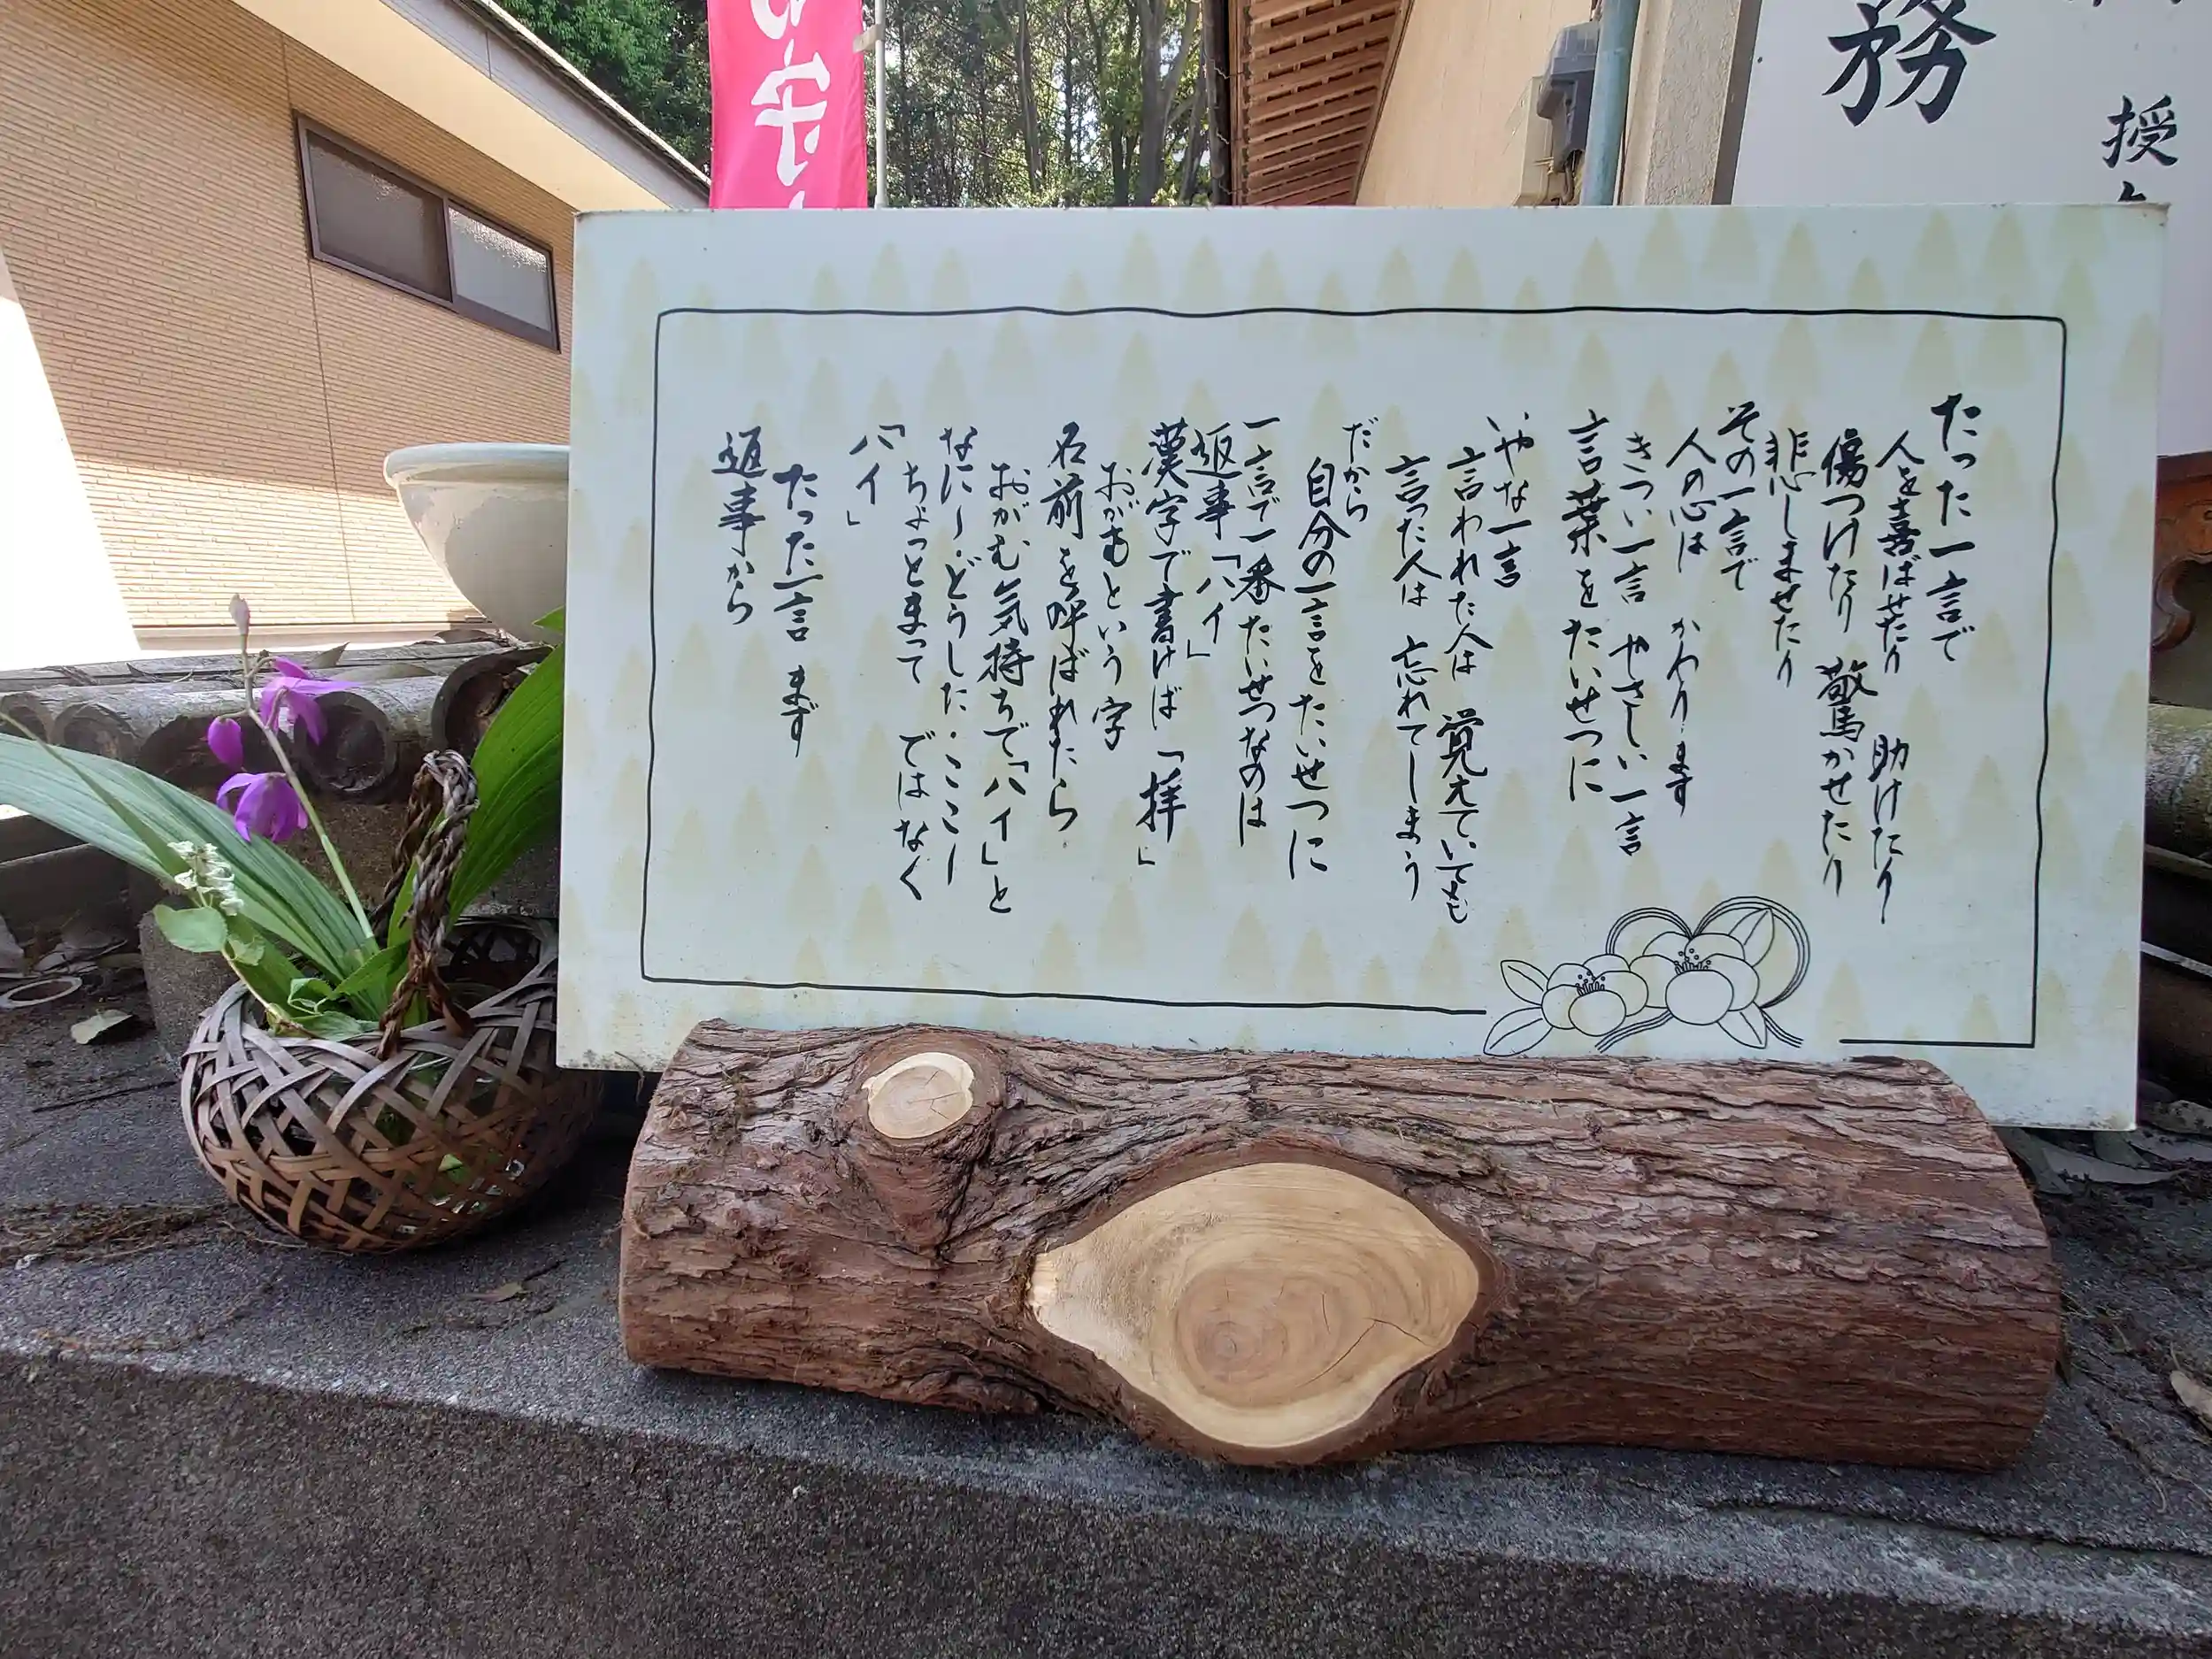 たった一言で
人を喜ばせたり 助けたり
傷つけたり 驚かせたり
悲しませたり
その一言で
人の心は かわります
きつい一言 やさしい一言
言葉をたいせつに
いやな一言
言われた人は 覚えていても
言った人は 忘れてしまう
だから
自分の一言をたいせつに
一言で一番たいせつなのは
返事「ハイ」
漢字で書けば「拝」
おがむという字
名前を呼ばれたら
おがむ気持ちで「ハイ」と
なに〜・どうした・ここー
ちょっとまって ではなく
「ハイ」
たった一言 まず
返事から
守
務
授